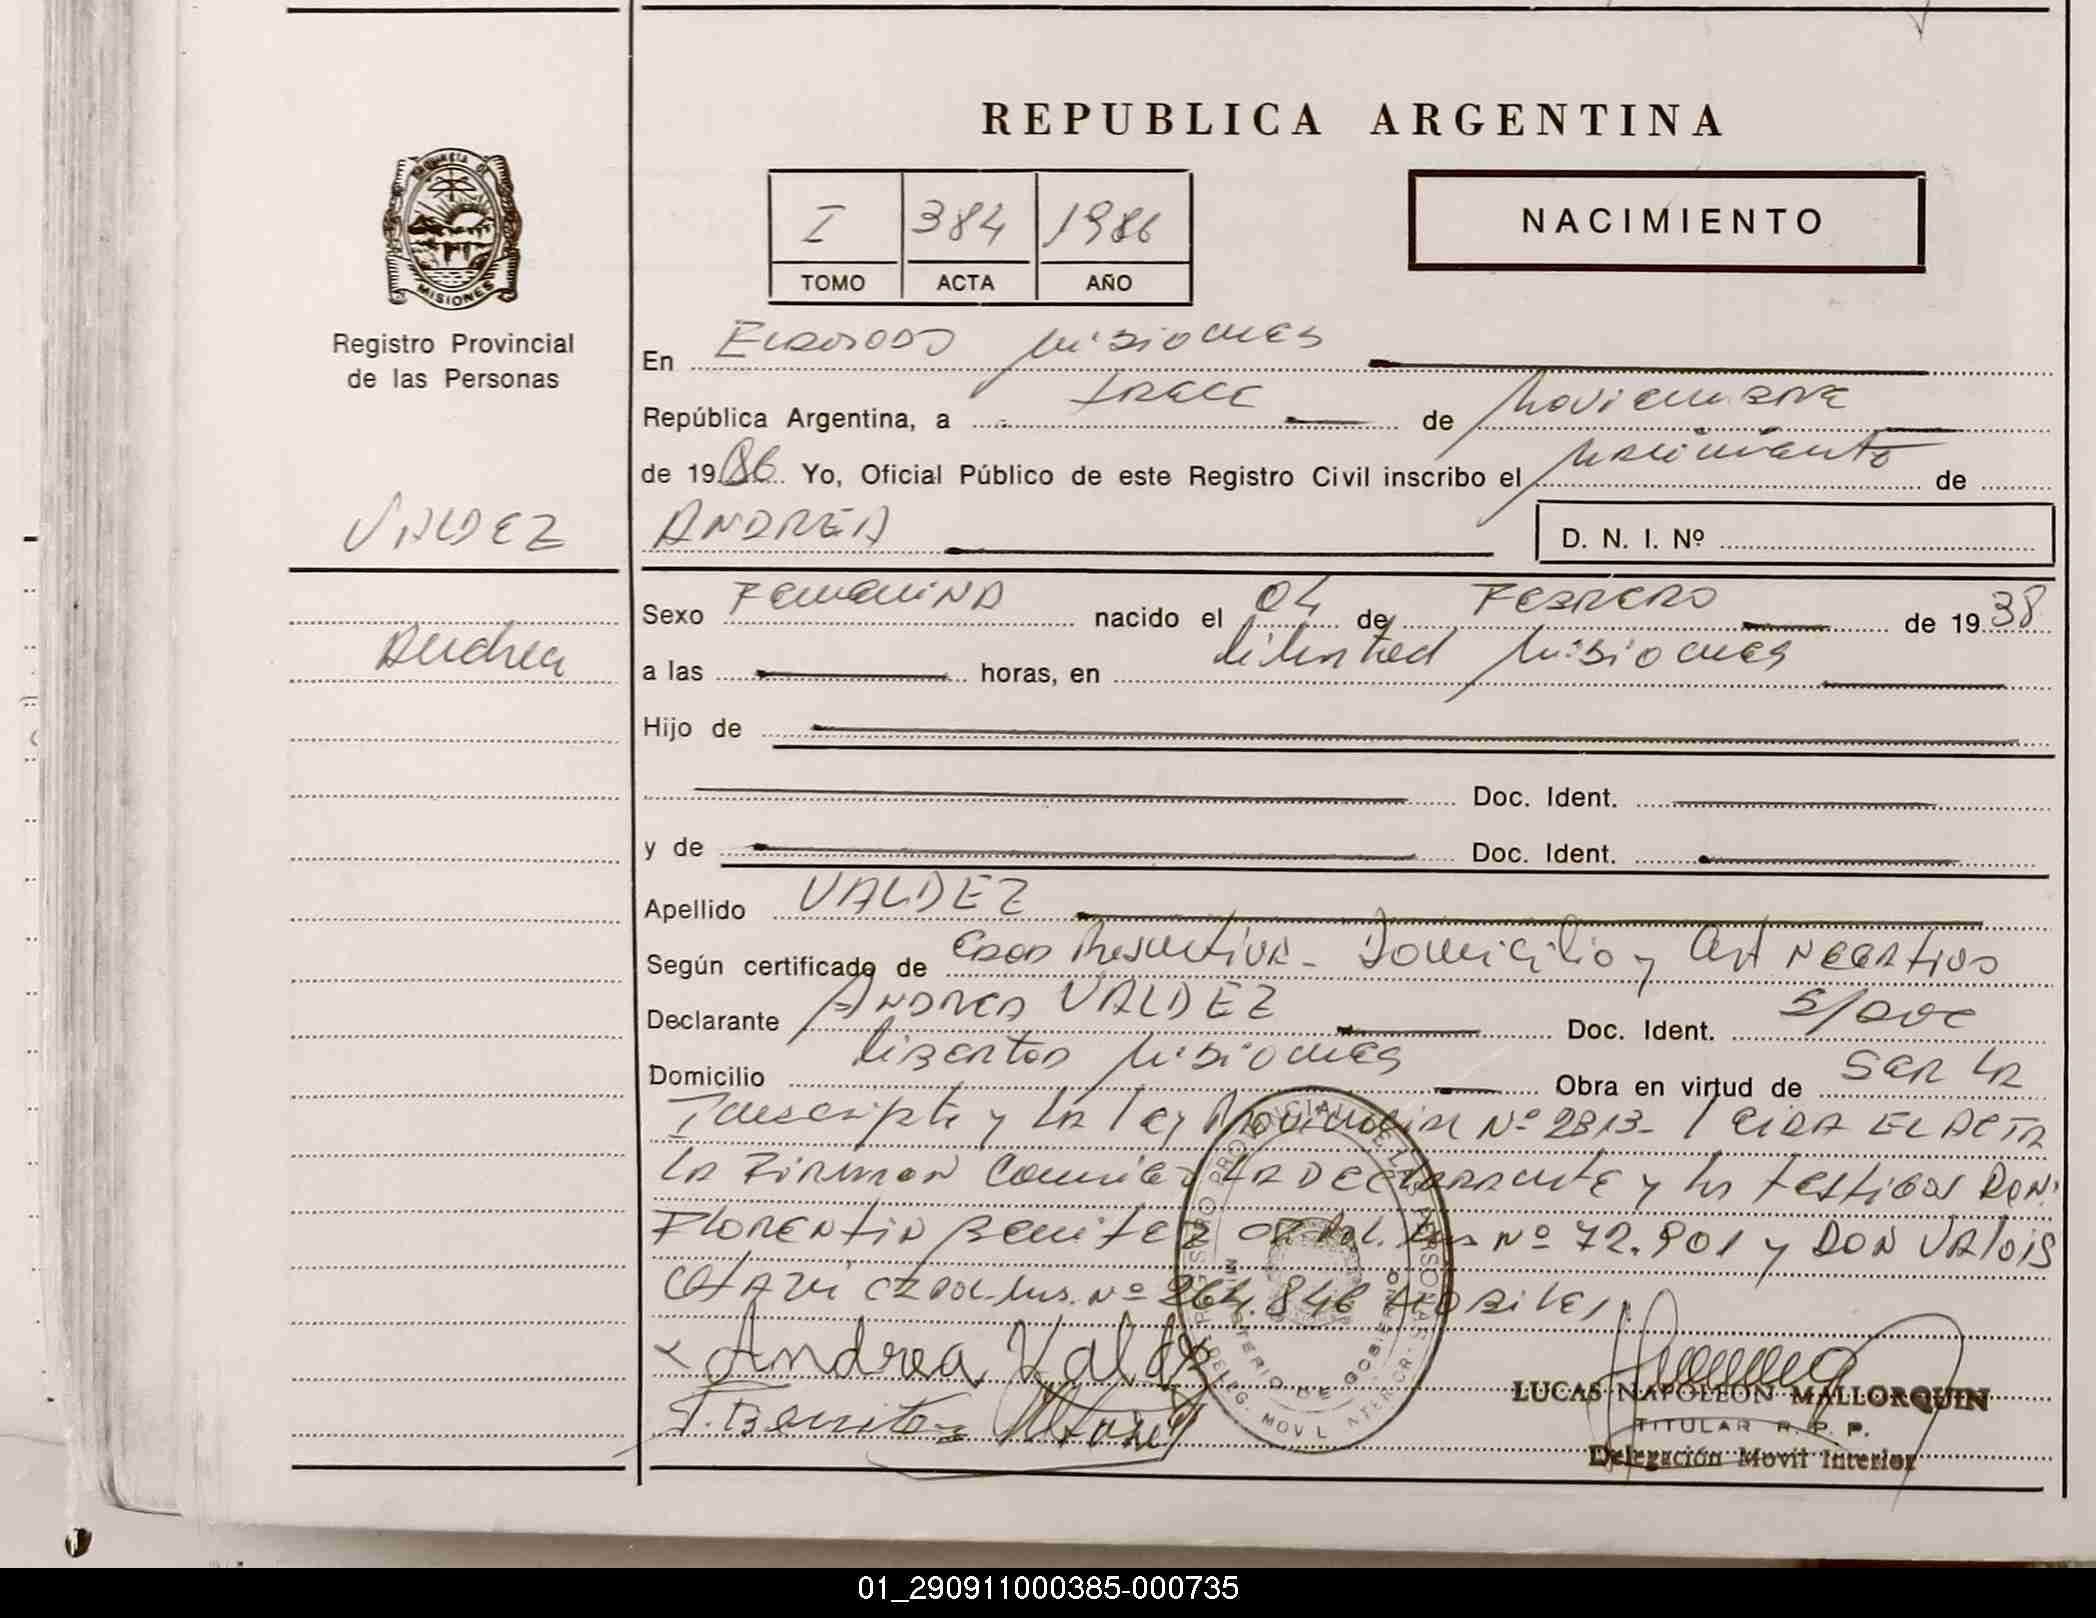 REPUBLICA ARGENTINA
I 384 1986
TOMO ACTA AÑO
NACIMIENTO
PROVINCIA DE
MISIONES
Registro Provincial
de las Personas
VALDEZ
Andrea
En Eldorado Misiones
República Argentina, a trece de Noviembre
de 1986 Yo, Oficial Público de este Registro Civil inscribo el nacimiento de
ANDREA D. N. I. Nº
Sexo Femenina nacido el 04 de Febrero de 1938
a las horas, en Libertad Misiones
Hijo de
Doc. Ident.
y de Doc. Ident.
Apellido VALDEZ
Según certificado de Edad Presuntiva - Domicilio y Cert Negativo
Declarante ANDREA VALDEZ Doc. Ident. S/Doc
Domicilio Libertad Misiones Obra en virtud de SER LA
Inscripta y LA Ley Provincial Nº 2813- Leida EL ACTA
LA Firman Conmigo LA DECLARANTE y los testigos DON:
FLORENTIN Benitez CI Pol. Mis Nº 72.901 y DON VALOIS
CI Pol. Mis. Nº 264.846 Habiles.
x Andrea Valdez
F. Benitez
REGISTRO PROVINCIAL DE LAS PERSONAS
MINISTERIO DE GOBIERNO
DELEG. MOVIL INTERIOR
LUCAS NAPOLEON MALLORQUIN
TITULAR R. P. P.
Delegación Movil Interior
01_290911000385-000735